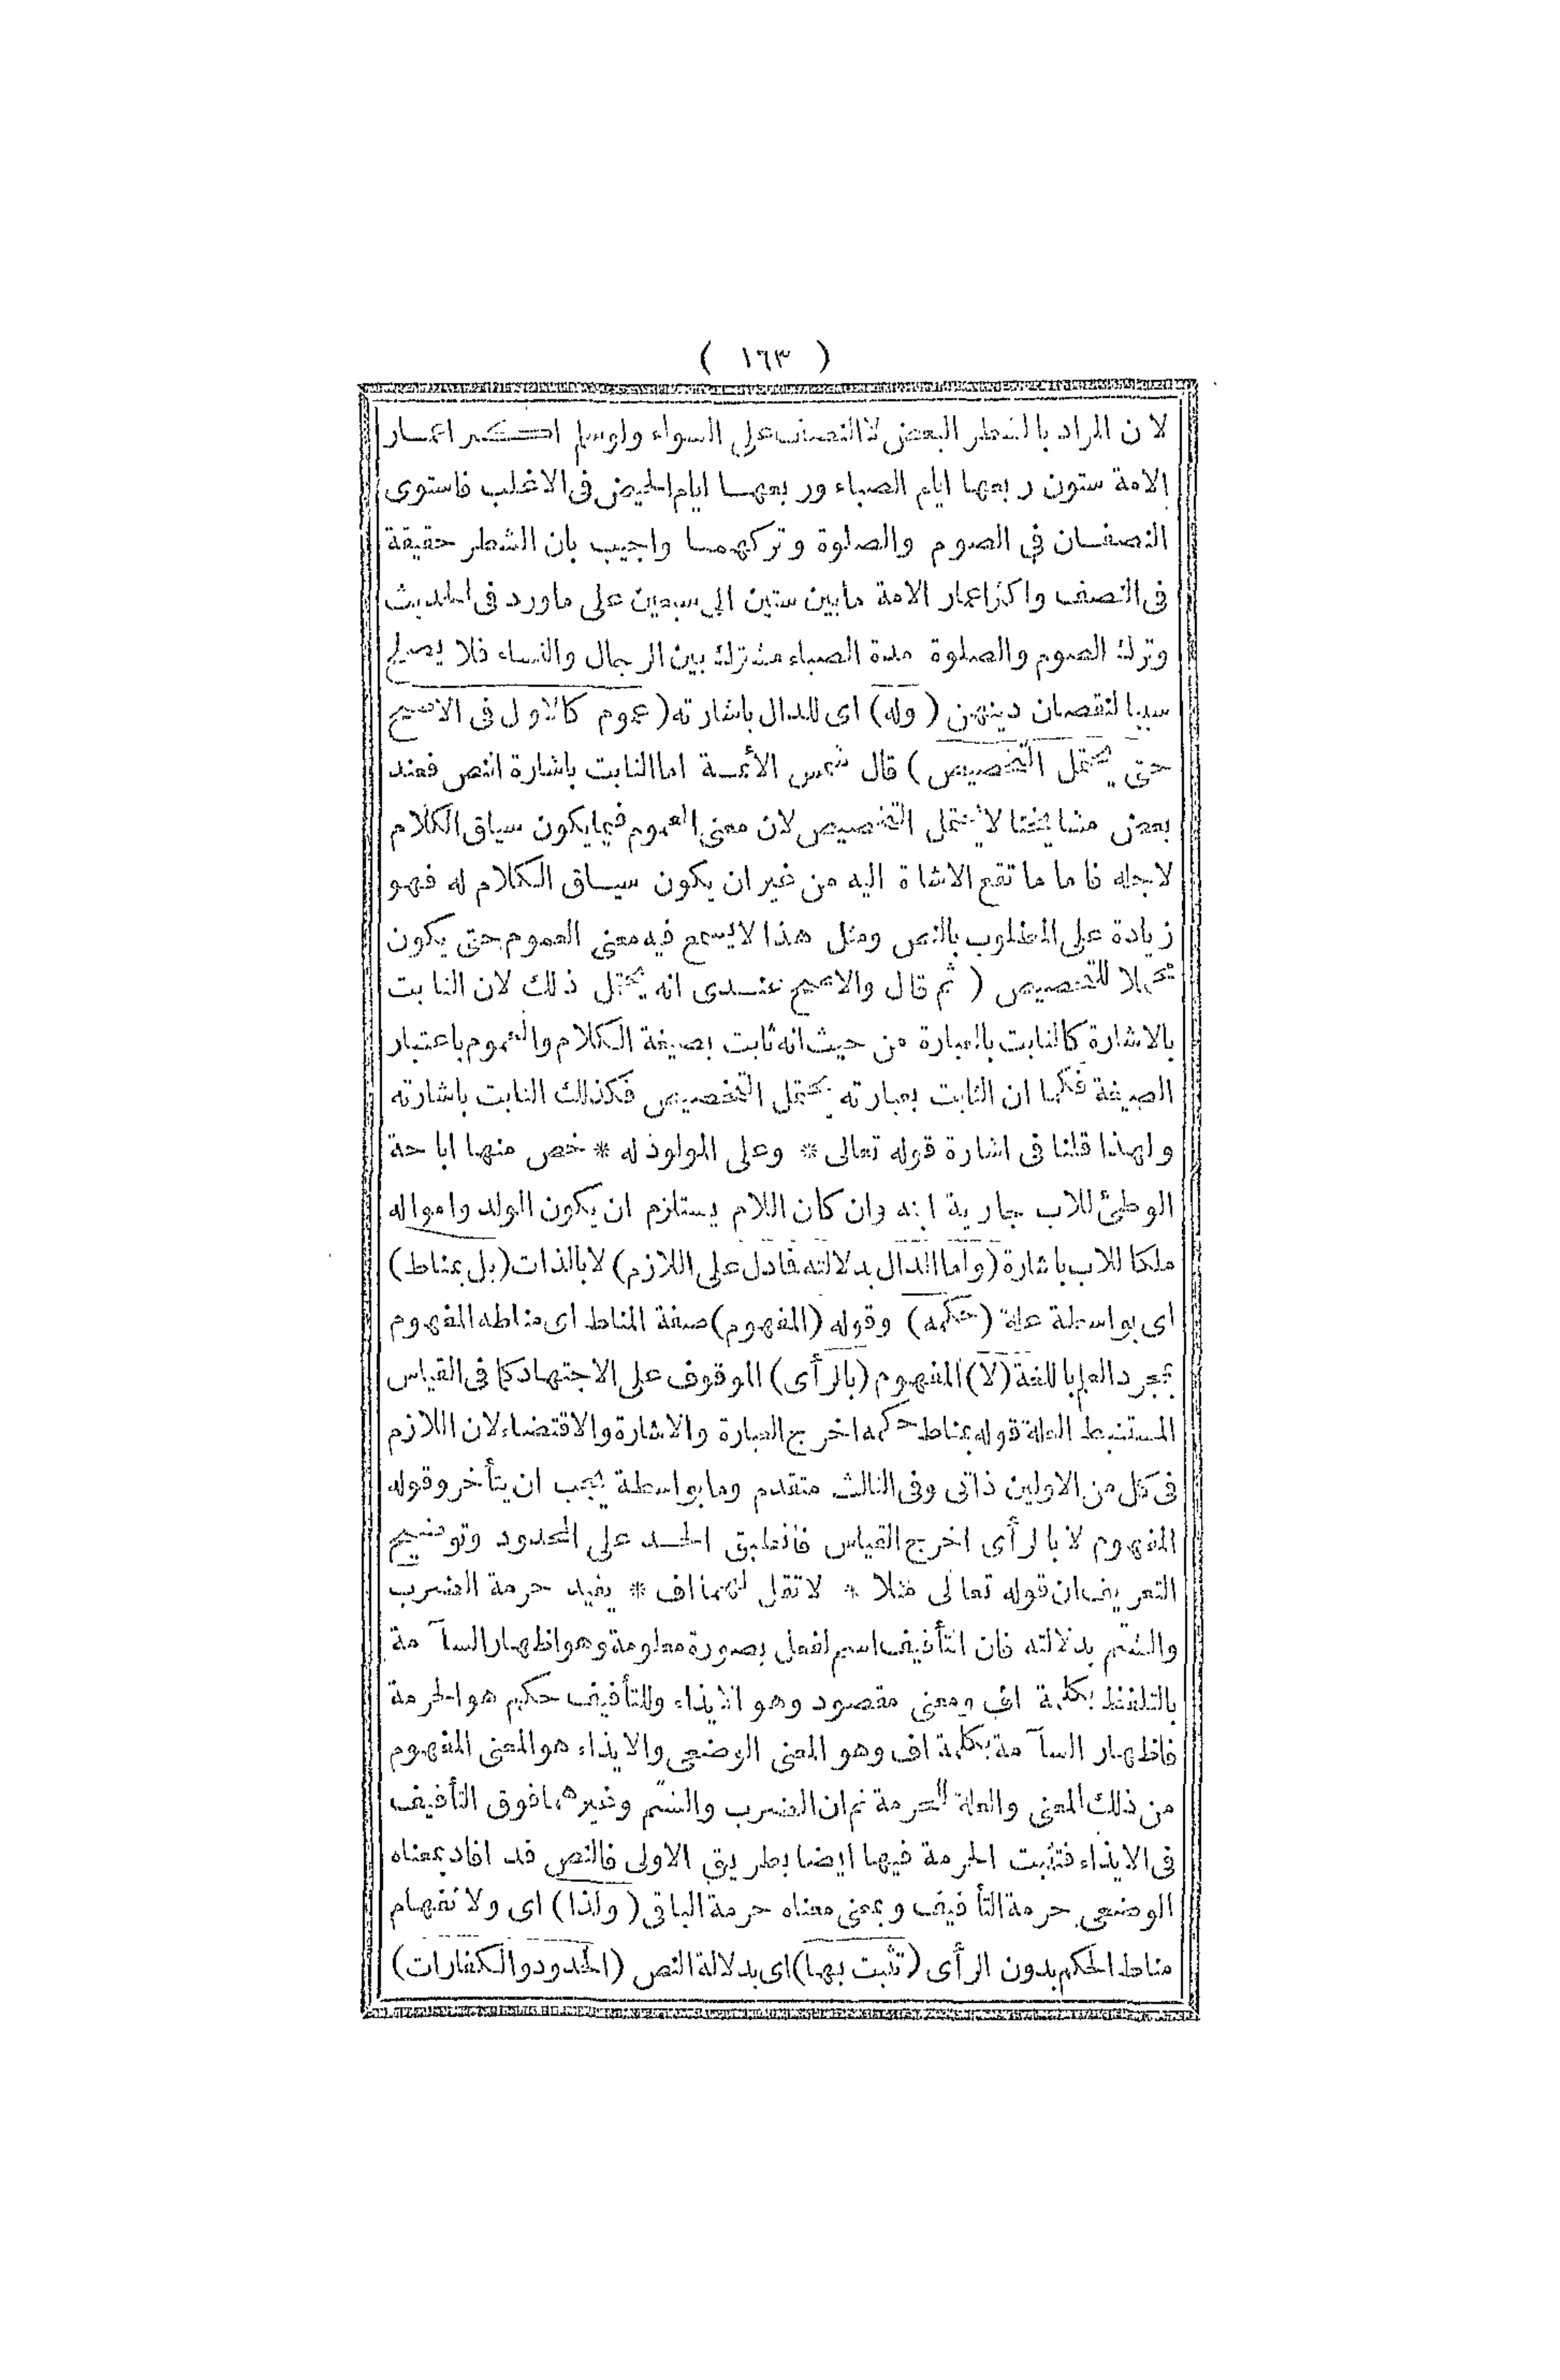 ( ١٦٣ )
لان المراد بالشطر البعض لا النصف على السواء ولو سلم اكثر اعمار
الامة ستون ربعها ايام الصباء وربعها ايام الحيض فى الاغلب فاستوى
النصفان فى الصوم والصلوة وتركهما واجيب بان الشطر حقيقة
فى النصف واكثر اعمار الامة مابين ستين الى سبعين على ماورد فى الحديث
وترك الصوم والصلوة مدة الصباء مشترك بين الرجال والنساء فلا يصلح
سببا لنقصان دينهن (وله) اى للدال باشارته (عموم كالاول فى الاصح
حتى يحتمل التخصيص) قال شمس الأئمة اما الثابت باشارة النص فعند
بعض مشايخنا لا يحتمل التخصيص لان معنى العموم فيما يكون سياق الكلام
لاجله فاما ما تقع الاشاة اليه من غير ان يكون سياق الكلام له فهو
زيادة على المطلوب بالنص ومثل هذا لا يسع فيه معنى العموم حتى يكون
محملا للتخصيص ( ثم قال والاصح عندى انه يحتمل ذلك لان الثابت
بالاشارة كالثابت بالعبارة من حيث انه ثابت بصيغة الكلام والعموم باعتبار
الصيغة فكما ان الثابت بعبارته يحتمل التخصيص فكذلك الثابت باشارته
ولهذا قلنا فى اشارة قوله تعالى * وعلى المولود له * خص منها اباحة
الوطئ للاب جارية ابنه وان كان اللام يستلزم ان يكون الولد وامواله
ملكا للاب باشارة (واما الدال بدلالته فادل على اللازم) لا بالذات (بل بمناط)
اى بواسطة علة (حكمه) وقوله (المفهوم) صفة المناط اى مناطه المفهوم
بمجرد العلم باللغة (لا) المفهوم (بالرأى) الموقوف على الاجتهاد كما فى القياس
المستنبط العلة قوله بمناط حكمه اخرج العبارة والاشارة والاقتضاء لان اللازم
فى كل من الاولين ذاتى وفى الثالث متقدم وما بواسطة يجب ان يتأخر وقوله
المفهوم لا بالرأى اخرج القياس فانطبق الحد على المحدود وتوضيح
التعريف ان قوله تعالى مثلا * لا تقل لهما اف * يفيد حرمة الضرب
والشتم بدلالته فان التأفيف اسم لفعل بصورة معلومة وهو اظهار السآمة
بالتلفظ بكلمة اف ومعنى مقصود وهو الايذاء وللتأفيف حكم هو الحرمة
فاظهار السآمة بكلمة اف وهو المعنى الوضعى والايذاء هو المعنى المفهوم
من ذلك المعنى والعلة للحرمة ثم ان الضرب والشتم وغيرهما فوق التأفيف
فى الايذاء فتثبت الحرمة فيها ايضا بطريق الاولى فالنص قد افاد بمعناه
الوضعى حرمة التأفيف وبمعنى معناه حرمة الباقى (ولذا) اى ولانفهام
مناط الحكم بدون الرأى (تثبت بها) اى بدلالة النص (الحدود والكفارات)